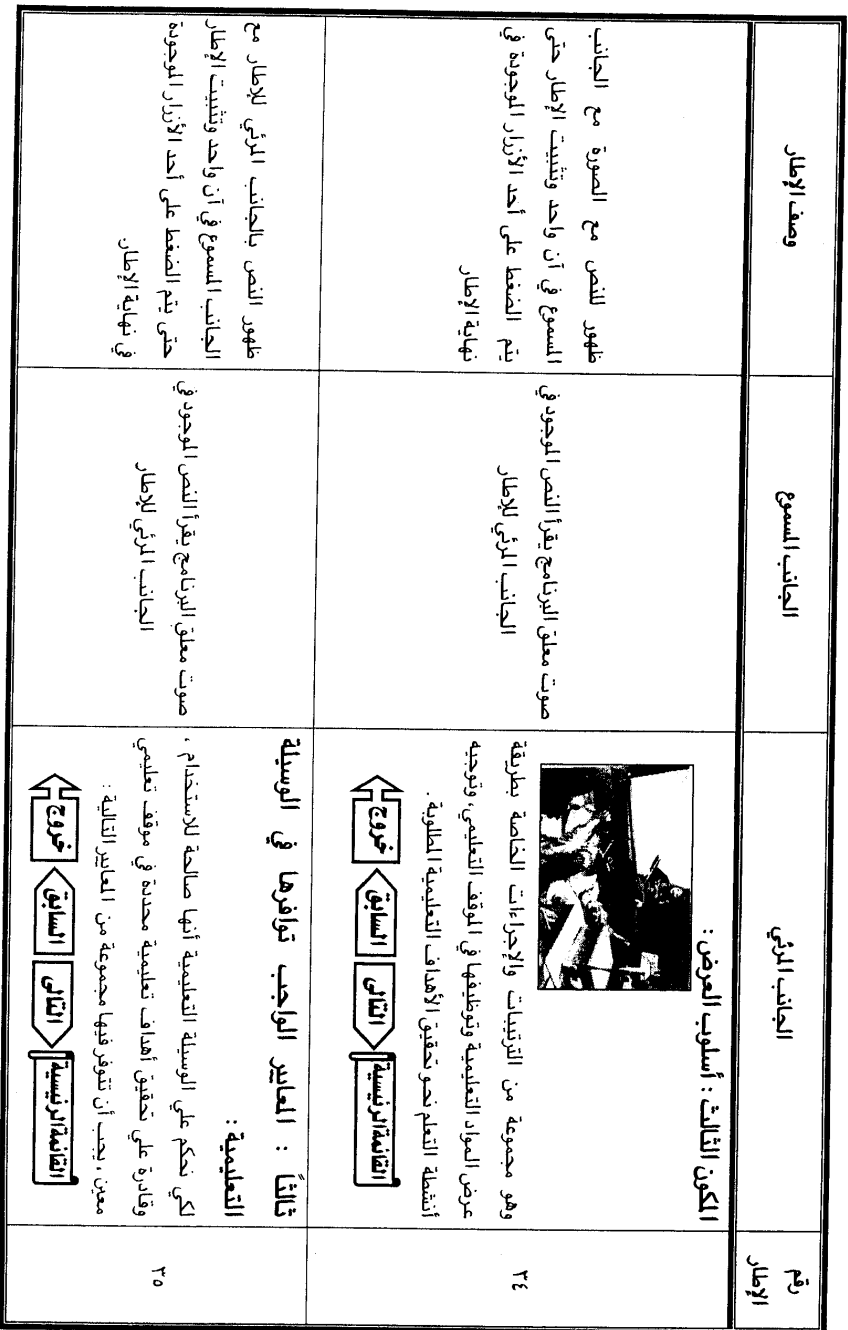 رقم
الإطار
الجانب المرئي
الجانب المسموع
وصف الإطار
٣٤
المكون الثالث : أسلوب العرض :
وهو مجموعة من الترتيبات والإجراءات الخاصة بطريقة
عرض المواد التعليمية وتوظيفها في الموقف التعليمي، وتوجيه
أنشطة التعلم نحو تحقيق الأهداف التعليمية المطلوبة .
القائمة الرئيسية
التالى
السابق
خروج
صوت معلق البرنامج يقرأ النص الموجود في
الجانب المرئي للإطار
ظهور للنص مع الصورة مع الجانب
المسموع في آن واحد وتثبيت الإطار حتى
يتم الضغط على أحد الأزرار الموجودة في
نهاية الإطار
٣٥
ثالثاً : المعايير الواجب توافرها في الوسيلة
التعليمية :
لكي نحكم علي الوسيلة التعليمية أنها صالحة للاستخدام ،
وقادرة علي تحقيق أهداف تعليمية محددة في موقف تعليمي
معين ، يجب أن تتوفر فيها مجموعة من المعايير التالية :
القائمة الرئيسية
التالى
السابق
خروج
صوت معلق البرنامج يقرأ النص الموجود في
الجانب المرئي للإطار
ظهور النص بالجانب المرئي للإطار مع
الجانب المسموع في آن واحد وتثبيت الإطار
حتى يتم الضغط على أحد الأزرار الموجودة
في نهاية الإطار